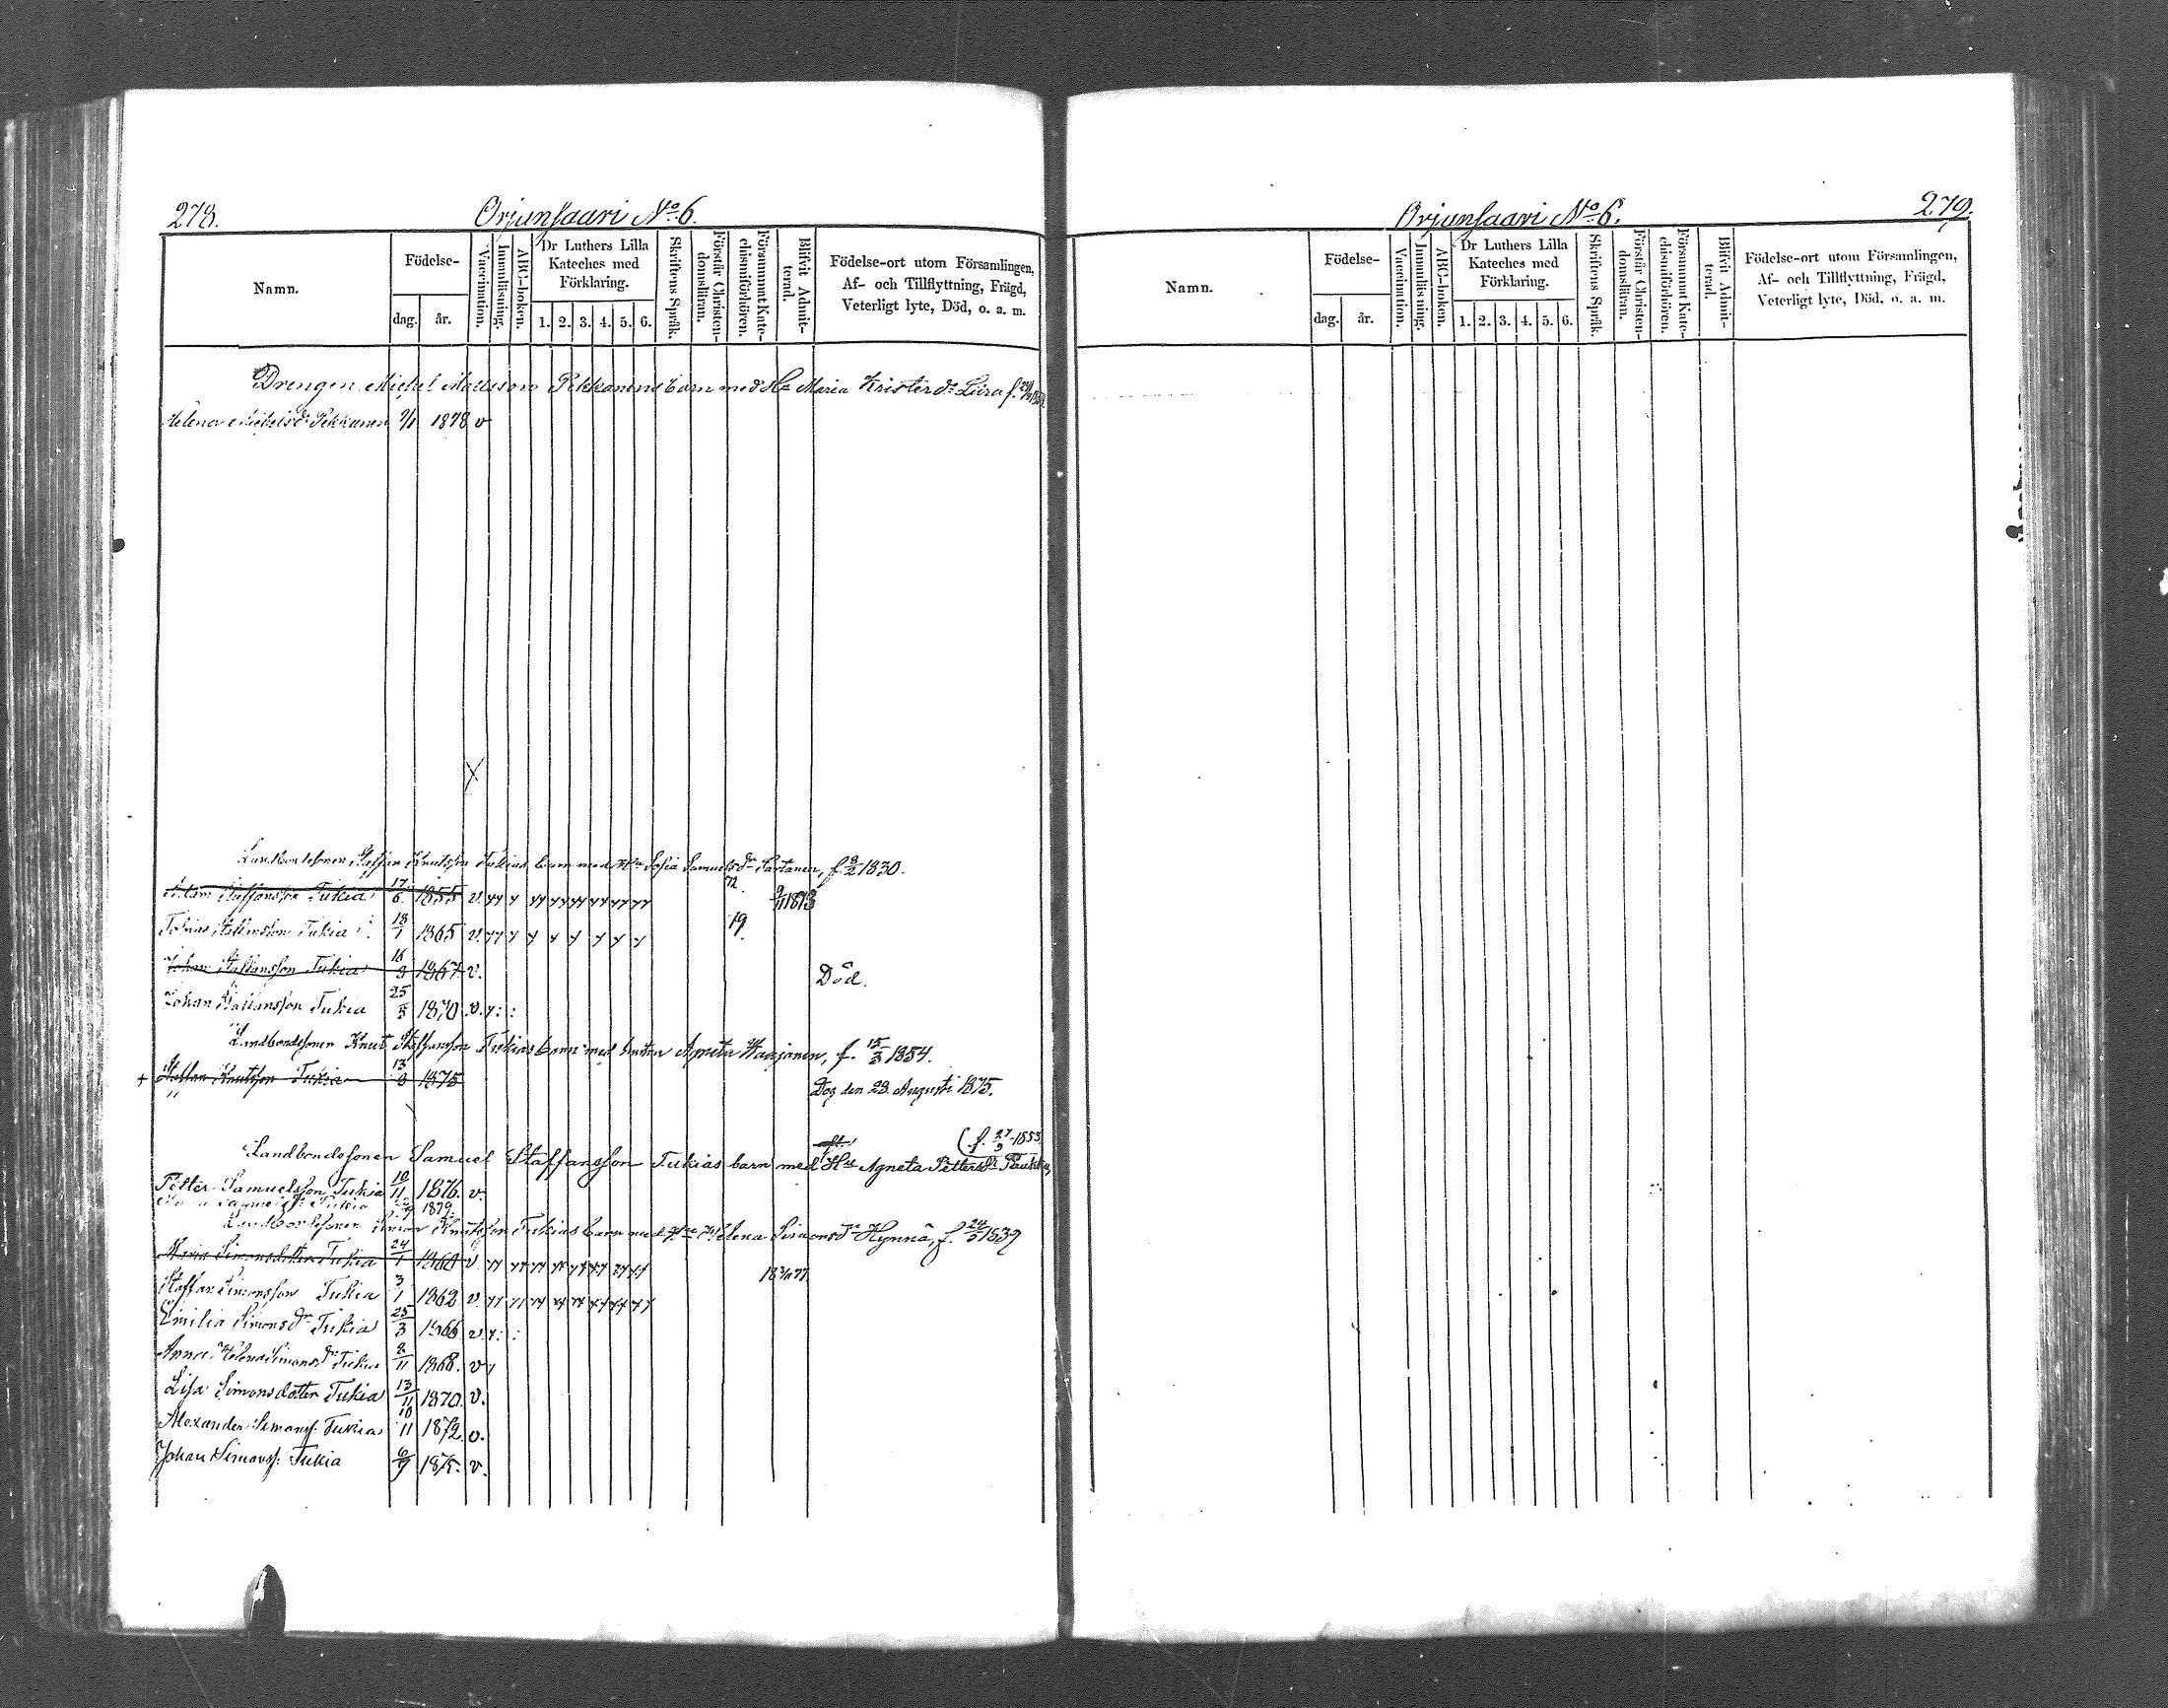 278.
Orjunsaari No. 6.
Namn.
Födelse-
dag.
år.
Vaccination.
Innanläsning.
ABC-boken.
Dr Luthers Lilla
Kateches med
Förklaring.
1. 2. 3. 4. 5. 6.
Skriftens Språk.
Förstår Christen-
domsläran.
Försummat Kate-
chismiförhören.
Blifvit Admit-
terad.
Födelse-ort utom Församlingen,
Af- och Tillflyttning, Frägd,
Veterligt lyte, Död, o. a. m.
Drengen Michel Mattsson Pekkanens barn med H:u Maria Kristersdr
Helena Michelsdr Pekkanen 1878 v
Landbondesonen Staffan Knutsson Tukias barn med H:u Sofia Samuelsdr Partanen, f. 8/2 1830.
72.
Adam Staffansson Tukia 17/6 1855 v. 1873
Tobias Staffansson Tukia 18/1 1865 v. 19.
Johan Staffansson Tukia 1867 v. Död.
Johan Staffansson Tukia 25/5 1870 v.
Landbondesonen Knut Staffansson Tukias barn med hustru Agneta f. 15/3 1854.
+ Staffan Knutsson Tukia 13/8 1875 Dog den 23. Augusti 1875.
(f. 27/9 1853
Landbondesonen Samuel Staffansson Tukias barn med H:u Agneta Pettersdr
Petter Samuelsson Tukia 10/11 1876. v.
Samuelsdr Tukia 1879.
Landbondesonen Simon Knutsson Tukias barn med H:u Helena Simonsdr Hynnä, f. 24/5 1839
Maria Simonsdotter Tukia 24/1 1860 v.
Staffan Simonsson Tukia 3/1 1862 v.
Emilia Simonsdr Tukia 25/3 1866 v.
Anna Helena Simonsdr Tukia 2/11 1868. v
Lisa Simonsdotter Tukia 13/11 1870. v.
Alexander Simonss. Tukia 10/11 1872. v.
Johan Simonss. Tukia 6/9 1875. v.
Orjunsaari No. 6.
279.
Namn.
Födelse-
dag.
år.
Vaccination.
Innanläsning.
ABC-boken.
Dr Luthers Lilla
Kateches med
Förklaring.
1. 2. 3. 4. 5. 6.
Skriftens Språk.
Förstår Christen-
domsläran.
Försummat Kate-
chismiförhören.
Blifvit Admit-
terad.
Födelse-ort utom Församlingen,
Af- och Tillflyttning, Frägd,
Veterligt lyte, Död, o. a. m.